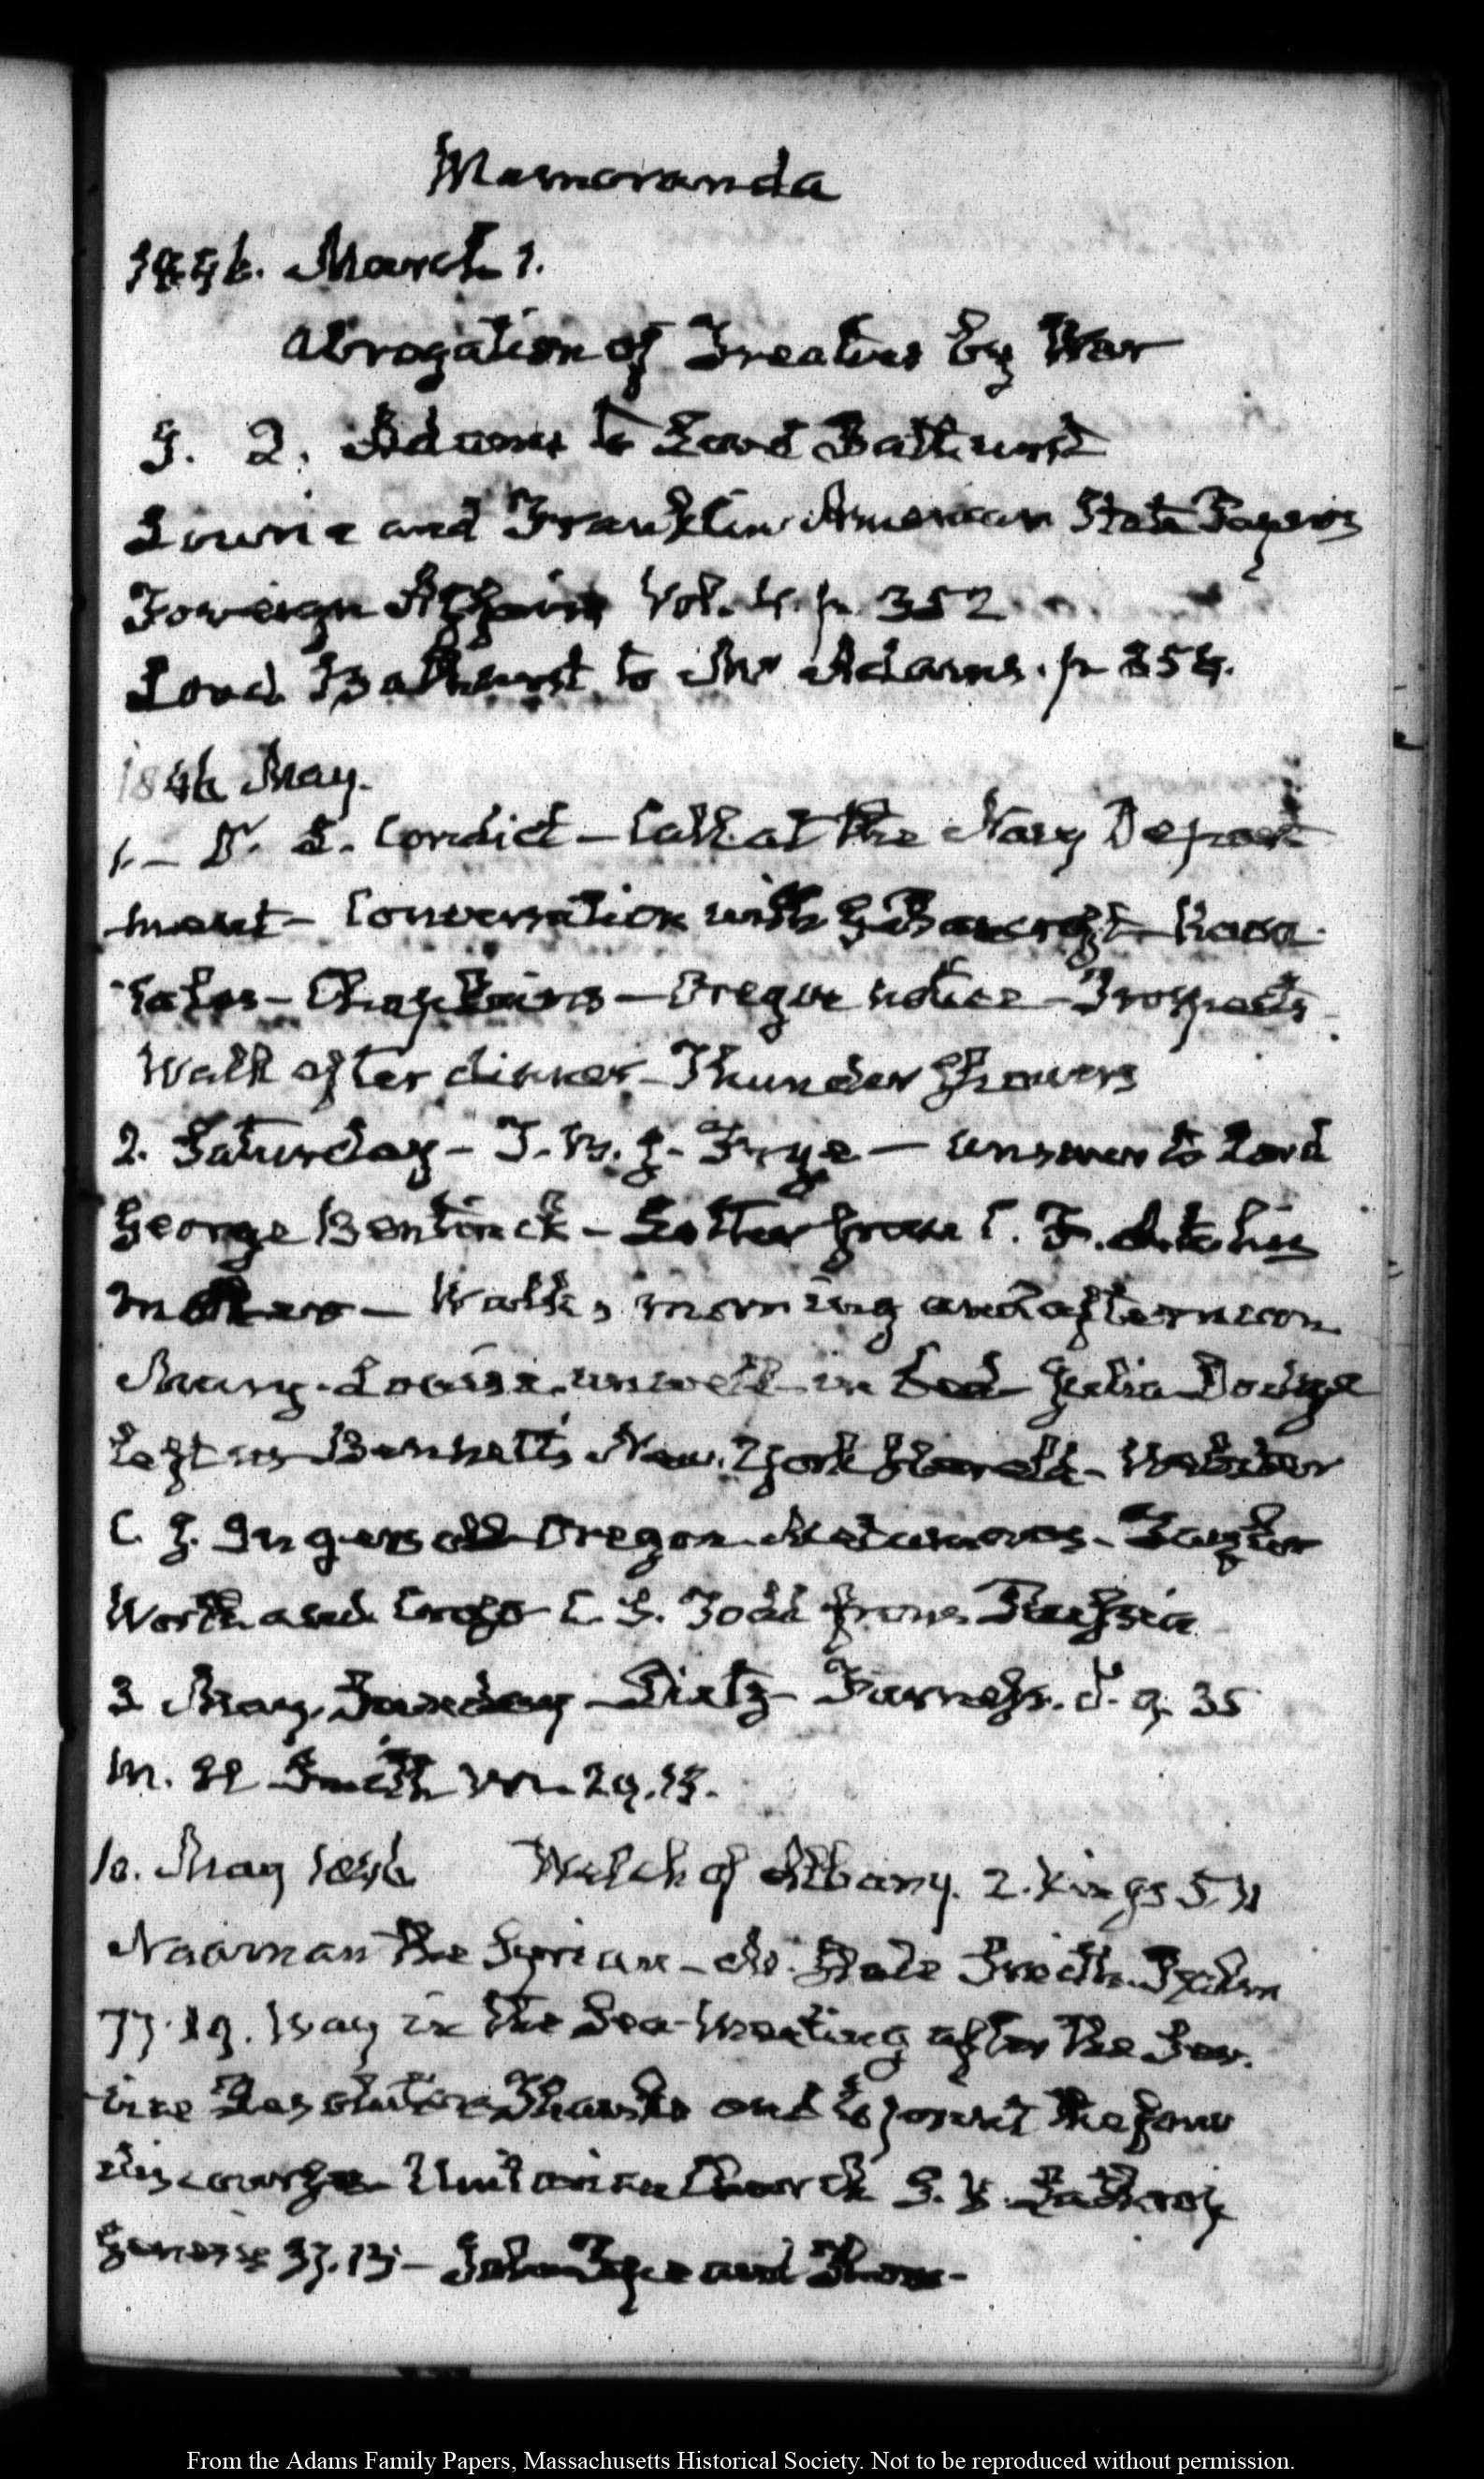 Memoranda
1846. March 1.
Abrogation of Treaties by War
J. Q. Adams to Lord Bathurst
Lowrie and Franklin American State Papers
Foreign Affairs Vol. 4. p. 352
Lord Bathurst to Mr Adams. p 354.
1846 May.
1.— Dr. L. Condict — Call at the Navy Depart
ment — Conversation with G Bancroft —
Chaplains — Oregon notice — Prospects
Walk after dinner — Thunder Showers
2. Saturday — T. B. J. Frye — answer to Lord
George Bentinck — Letter from C. F. A. to his
Mother — Walks, morning and afternoon
Mary-Louisa unwell in bed Julia
left us Bennett's New York Herald — Webster
C. J. Ingersoll Oregon Matamoras — Taylor
Worth and C. S. Todd from Russia
3 May, Sunday — 35
19.
10. May 1846 Welch of Albany. 2. Kings 5.11
Naaman the Syrian — Smith Psalm
77.19. Way in the Sea Meeting after the Ser
vice Resolution Thanks and to print the four
discourses Unitarian Church S. K. Lothrop
Genesis 37.13 —
From the Adams Family Papers, Massachusetts Historical Society. Not to be reproduced without permission.